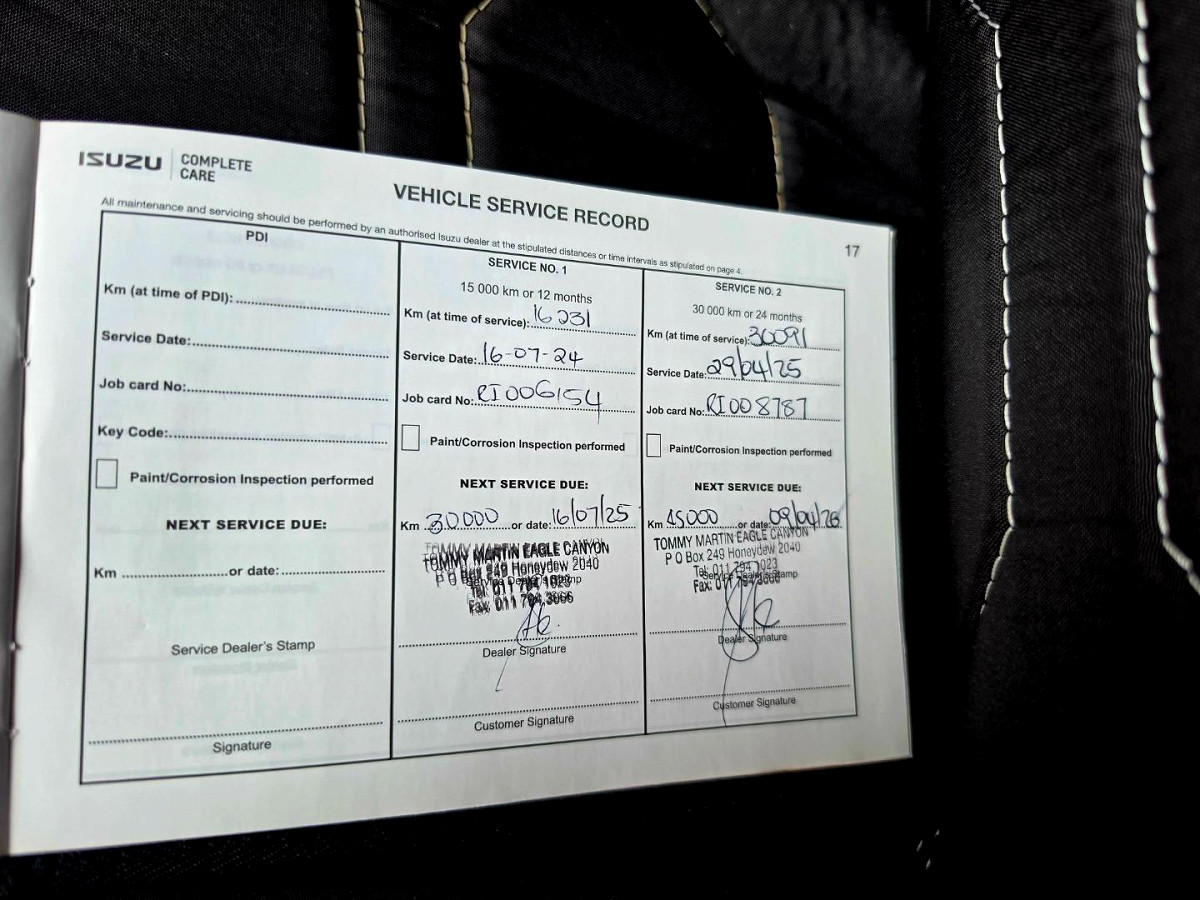 ISUZU COMPLETE CARE
VEHICLE SERVICE RECORD
17
All maintenance and servicing should be performed by an authorised Isuzu dealer at the stipulated distances or time intervals as stipulated on page 4.
PDI
Km (at time of PDI):
Service Date:
Job card No:
Key Code:
Paint/Corrosion Inspection performed
NEXT SERVICE DUE:
Km or date:
Service Dealer's Stamp
Signature
SERVICE NO. 1
15 000 km or 12 months
Km (at time of service): 16 231
Service Date: 16-07-24
Job card No: RI006154
Paint/Corrosion Inspection performed
NEXT SERVICE DUE:
Km 30000 or date: 16/07/25
TOMMY MARTIN EAGLE CANYON
P O Box 249 Honeydew 2040
Service Dealer's Stamp
Tel: 011 794 1023
Fax: 011 794 3666
Dealer Signature
Customer Signature
SERVICE NO. 2
30 000 km or 24 months
Km (at time of service): 30091
Service Date: 29/04/25
Job card No: RI008787
Paint/Corrosion Inspection performed
NEXT SERVICE DUE:
Km 45000 or date: 09/04/26
TOMMY MARTIN EAGLE CANYON
P O Box 249 Honeydew 2040
Tel: 011 794 1023
Service Dealer's Stamp
Fax: 011 794 3666
Dealer Signature
Customer Signature